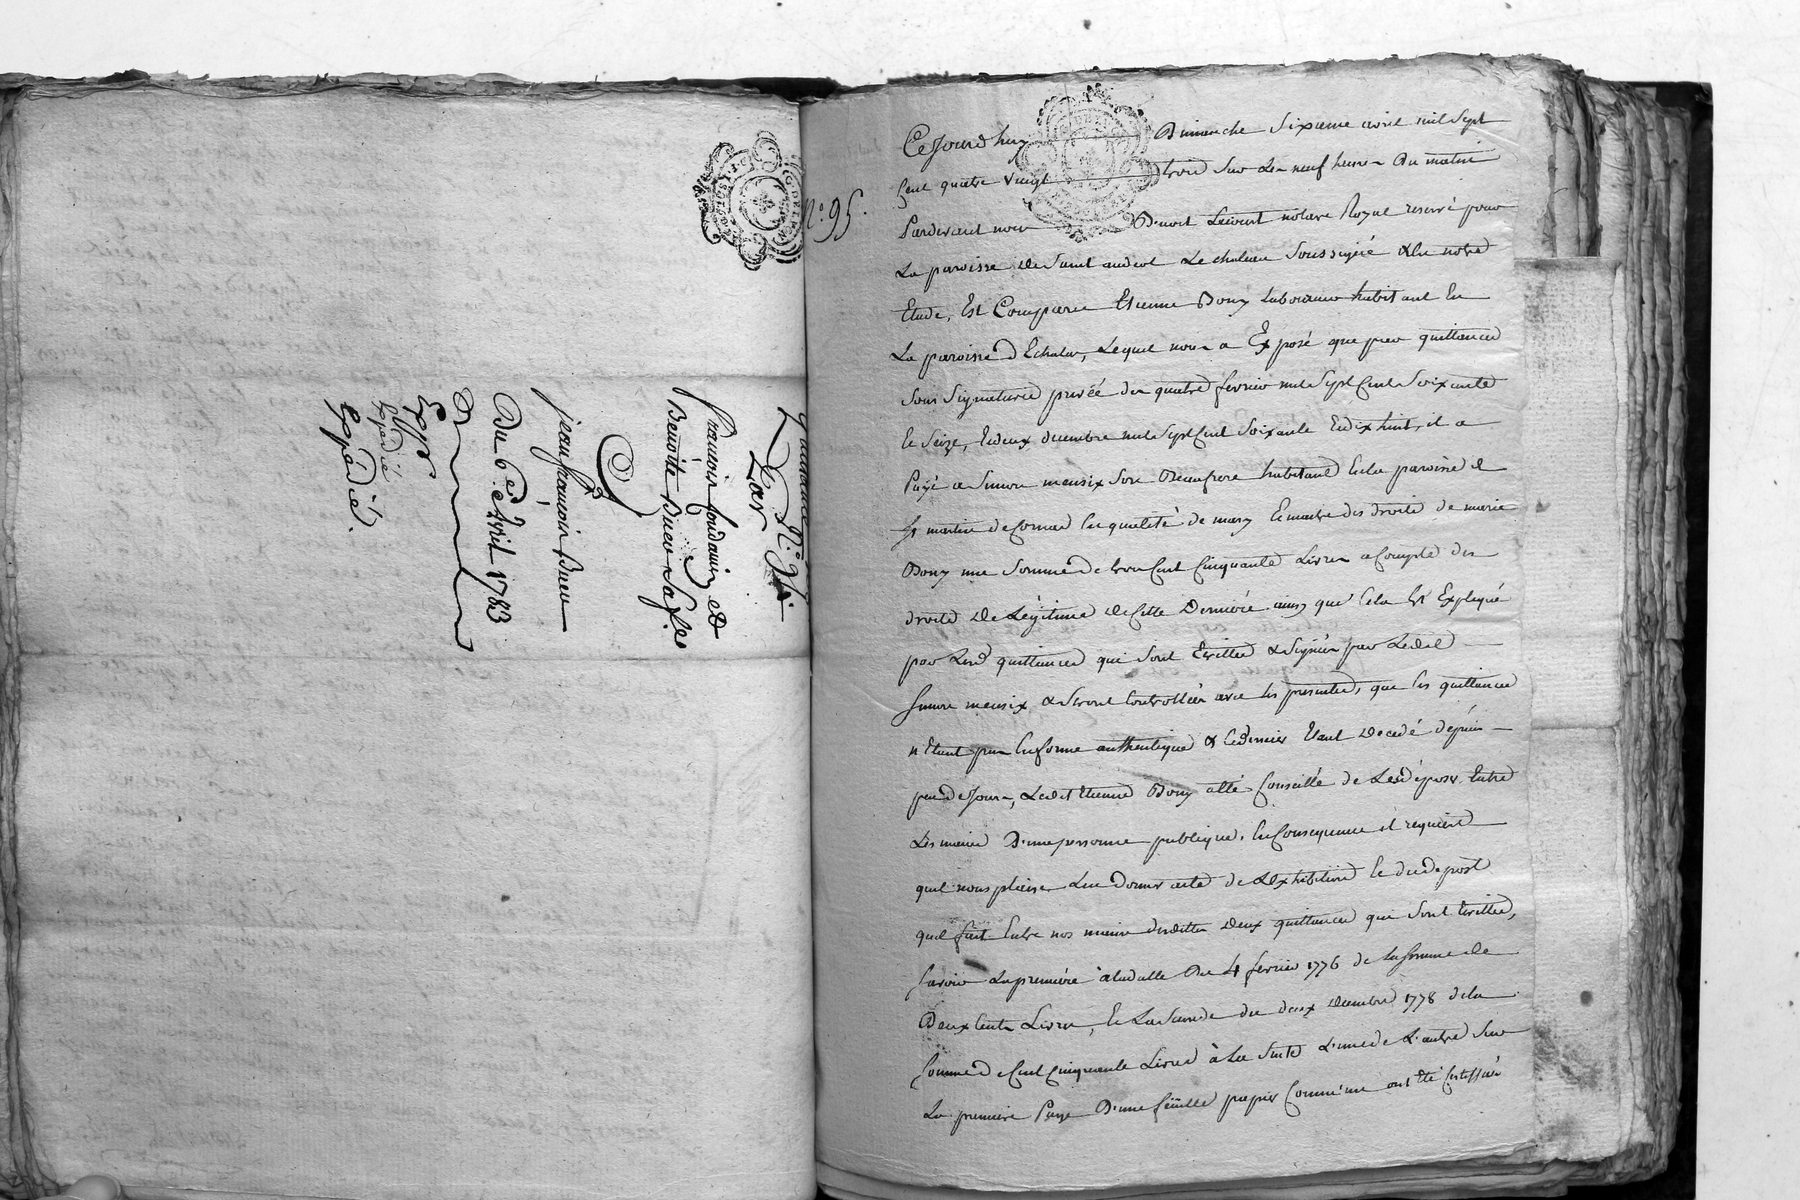 Quittance N.° 94.
Par
francois fondauin et
Benoite Buer Sa fe.
C
jean francois Buer
Du 6.e Avril 1783
Expr
Expédié
Expédié.
N.° 95.
Cejourdhuy Dimanche Sixieme avril mil Sept
Cent quatre vingt trois Sur Les neuf heures Du matin
Pardevant nous Benoit Lecourt notaire Royal reservé pour
La paroisse de Saint andeol Le chateau Soussigné & En notre
Etude, Est Comparu Etienne Bony Laboureur habitant En
La paroisse d'Echalas, Lequel nous a Exposé que par quittances
Sous Signatures privéé des quatre fevrier mil Sept Cent Soixante
et Seize, et deux decembre mil Sept Cent Soixante et dix huit, il a
Payé a Simon meusix Son Beaufrere habitant En la paroisse de
St martin de Cornas En qualité de mary et maitre des droits de marie
Bony une Somme de trois Cent Cinquante Livres a Compte des
droits de Légitime de Cette Derniere ainsy que Cela Est Expliqué
par Lesd quittances qui Sont Ecrittes & Signées par Ledit
Simon meusix & Seront Controllées avec les presentes, que les quittances
n'Etant pas En forme authentique & Ce dernier Etant Decedé dépuis
peu de Jours, Ledit Etienne Bony a été Conseillé de Les déposer Entre
Les mains D'une personne publique. En Consequence il requiert
quil nous plaise Lui donner acte de L'Exhibition et du depost
quil fait Entre nos mains desdittes deux quittances qui Sont Ecrittes,
Savoir La premiére à la datte Du 4 fevrier 1776 de la Somme de
Deux Cents Livres, et La Seconde du deux decembre 1778 de la
Somme de Cent Cinquante Livres à La Suite L'une de L'autre Sur
La premiere Page D'une feüille papier Comm'une ont Eté